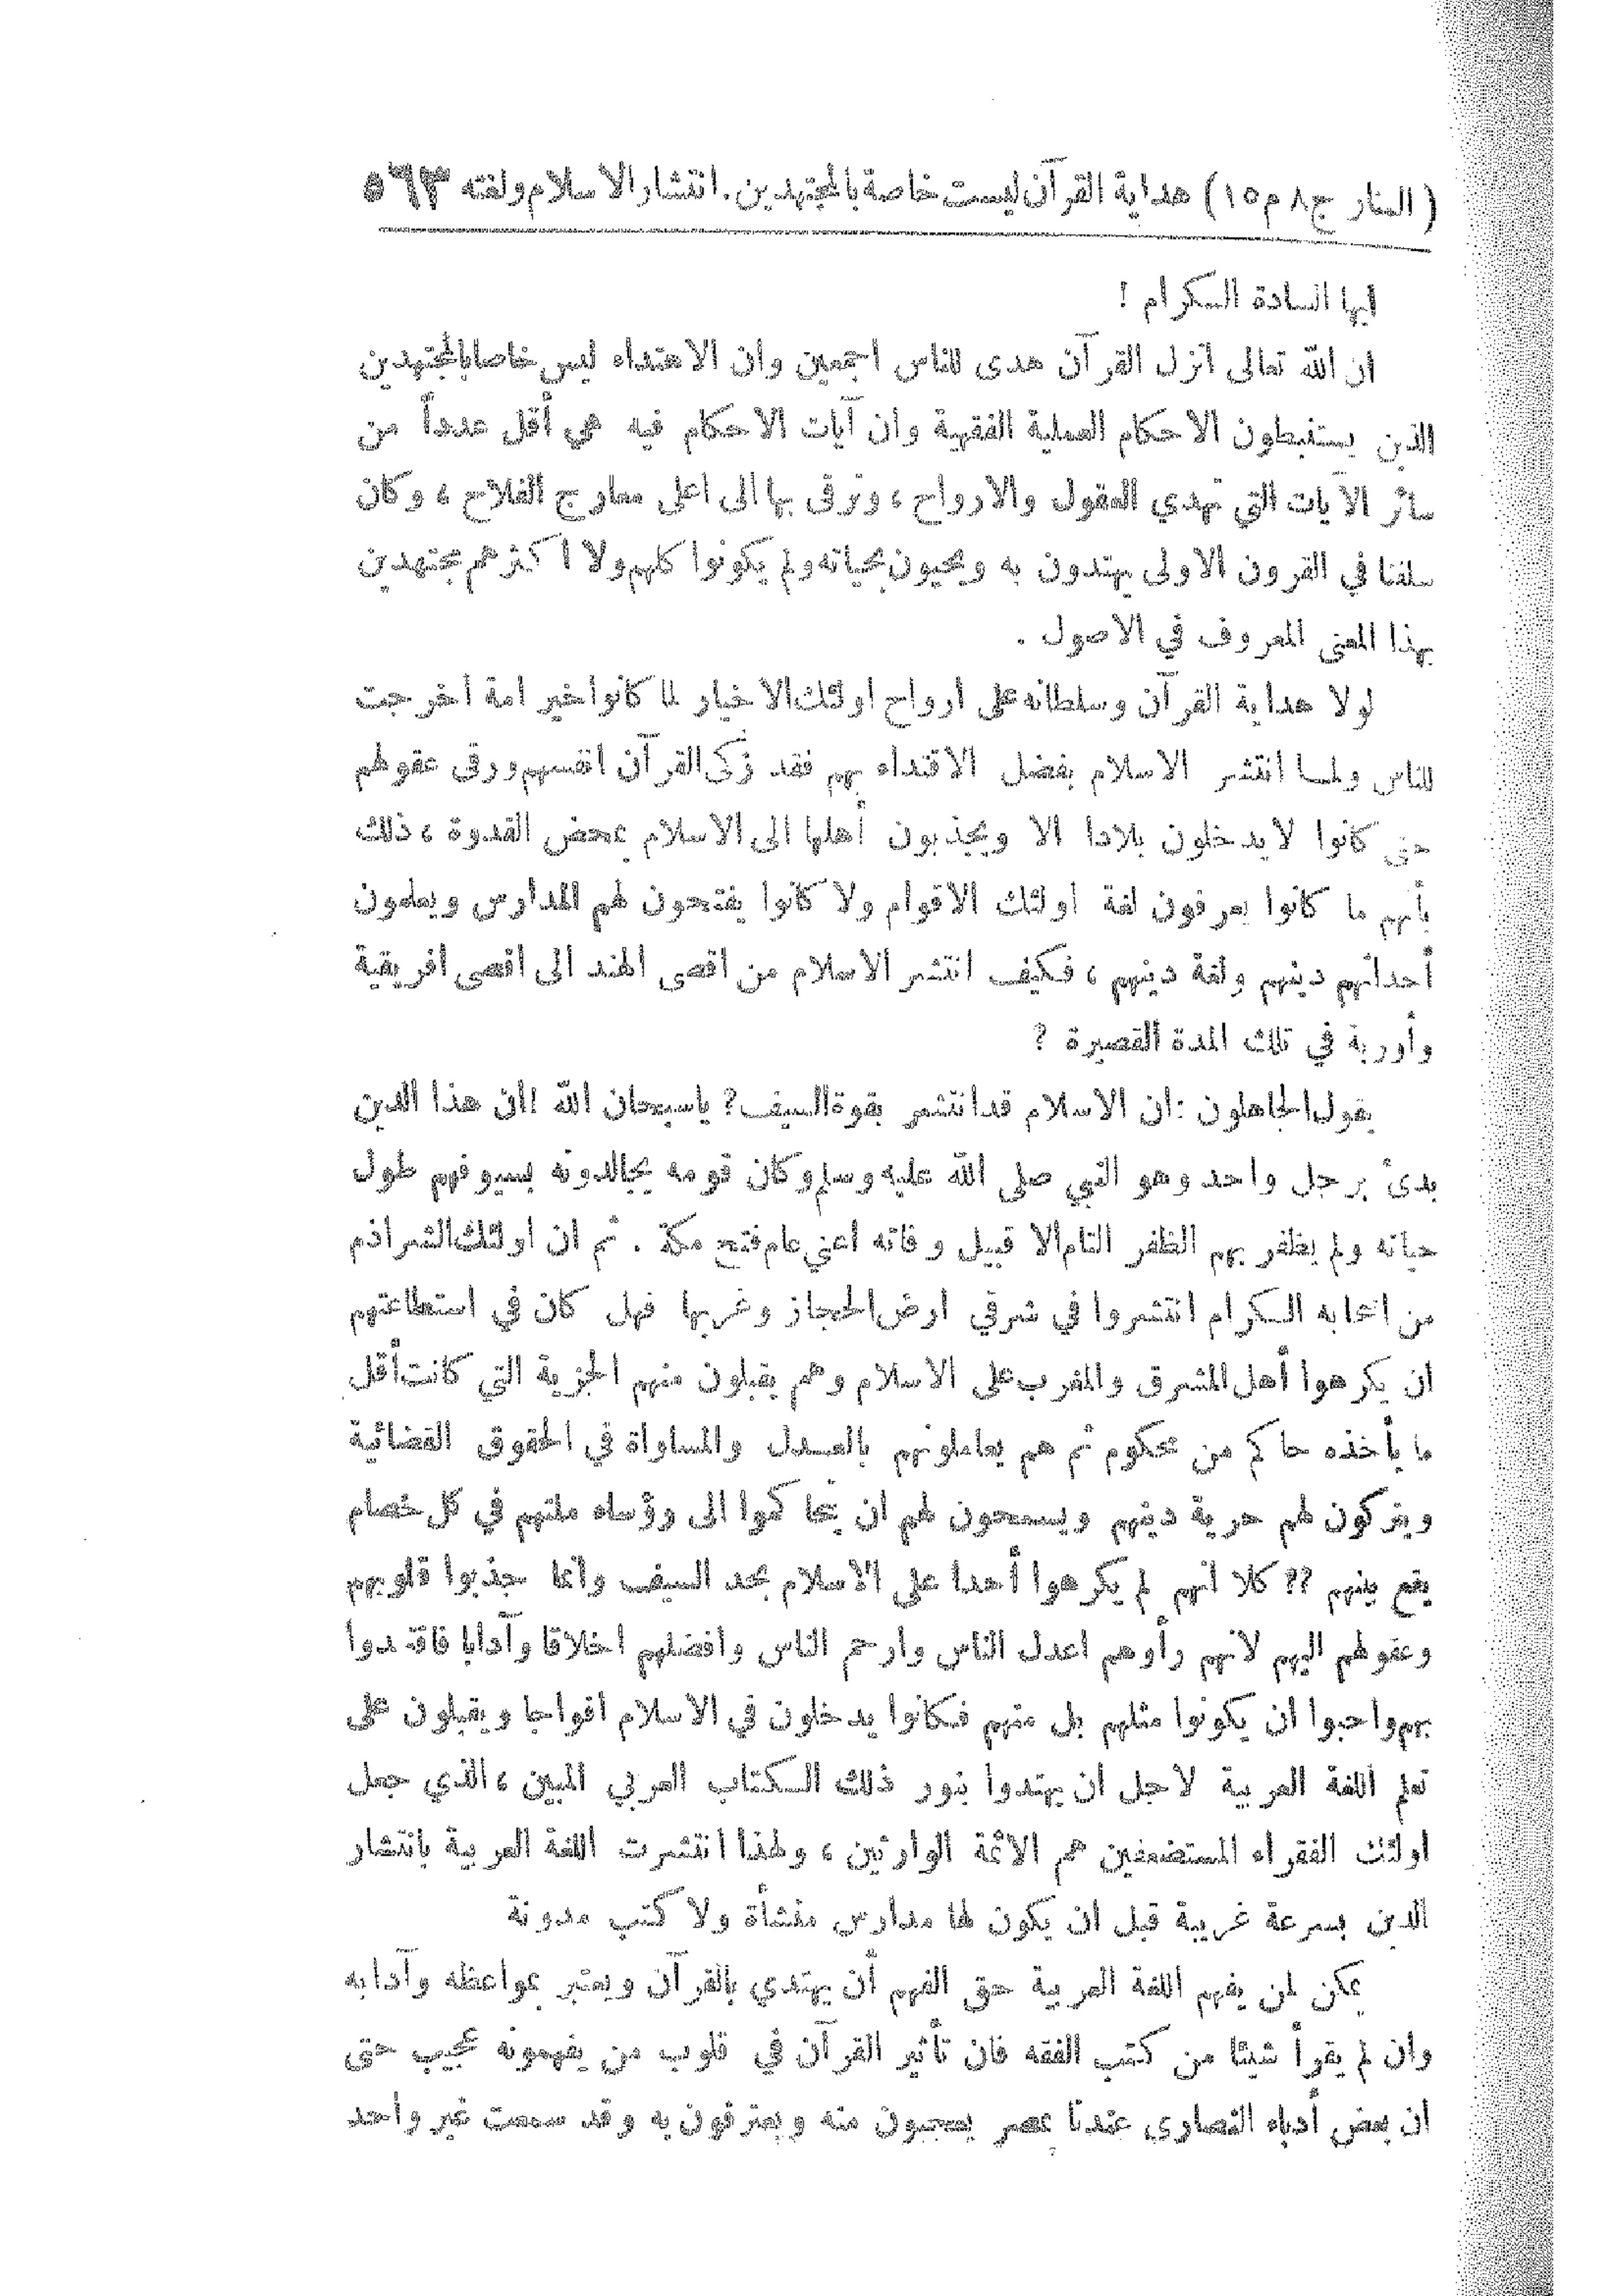 ( المنار ج ٨ م ١٥ ) هداية القرآن ليست خاصة بالمجتهدين . انتشار الاسلام ولغته ٥٦٣
ايها السادة الكرام !
ان الله تعالى انزل القرآن هدى للناس اجمعين وان الاهتداء ليس خاصا بالمجتهدين
الذين يستنبطون الاحكام العملية الفقهية وان آيات الاحكام فيه هي أقل عدداً من
سائر الآيات التي تهدي العقول والارواح ، وترقى بها الى اعلى معارج الفلاح ، وكان
سلفنا في القرون الاولى يهتدون به ويحيون بحياته ولم يكونوا كلهم ولا اكثرهم مجتهدين
بهذا المعنى المعروف في الاصول .
لولا هداية القرآن وسلطانه على ارواح اولئك الاخيار لما كانوا خير امة أخرجت
للناس ولما انتشر الاسلام بفضل الاقتداء بهم فقد زكى القرآن انفسهم ورقى عقولهم
حتى كانوا لا يدخلون بلادا الا ويجذبون أهلها الى الاسلام بمحض القدوة ، ذلك
بأنهم ما كانوا يعرفون لغة اولئك الاقوام ولا كانوا يفتحون لهم المدارس ويعلمون
أحداثهم دينهم ولغة دينهم ، فكيف انتشر الاسلام من اقصى الهند الى اقصى افريقية
وأوربة في تلك المدة القصيرة ؟
يقول الجاهلون : ان الاسلام قد انتشر بقوة السيف ؟ ياسبحان الله ! ان هذا الدين
بدئ برجل واحد وهو النبي صلى الله عليه وسلم وكان قومه يجالدونه بسيوفهم طول
حياته ولم يظفر بهم الظفر التام الا قبيل وفاته اعني عام فتح مكة . ثم ان اولئك الشراذم
من اصحابه الكرام انتشروا في شرقي ارض الحجاز وغربها فهل كان في استطاعتهم
ان يكرهوا أهل المشرق والمغرب على الاسلام وهم يقبلون منهم الجزية التي كانت أقل
ما يأخذه حاكم من محكوم ثم هم يعاملونهم بالعدل والمساواة في الحقوق القضائية
ويتركون لهم حرية دينهم ويسمحون لهم ان يتحاكموا الى رؤساء ملتهم في كل خصام
يقع بينهم ؟؟ كلا انهم لم يكرهوا أحدا على الاسلام بحد السيف وانما جذبوا قلوبهم
وعقولهم اليهم لانهم رأوهم اعدل الناس وارحم الناس وافضلهم اخلاقا وآدابا فاقتدوا
بهم واحبوا ان يكونوا مثلهم بل منهم فكانوا يدخلون في الاسلام افواجا ويقبلون على
تعلم اللغة العربية لاجل ان يهتدوا بنور ذلك الكتاب العربي المبين ، الذي جعل
اولئك الفقراء المستضعفين هم الائمة الوارثين ، ولهذا انتشرت اللغة العربية بانتشار
الدين بسرعة غريبة قبل ان يكون لها مدارس منشأة ولا كتب مدونة
يمكن لمن يفهم اللغة العربية حق الفهم أن يهتدي بالقرآن ويعتبر بمواعظه وآدابه
وان لم يقرأ شيئا من كتب الفقه فان تأثير القرآن في قلوب من يفهمونه عجيب حتى
ان بعض أدباء النصارى عندنا بمصر يعجبون منه ويعترفون به وقد سمعت غير واحد